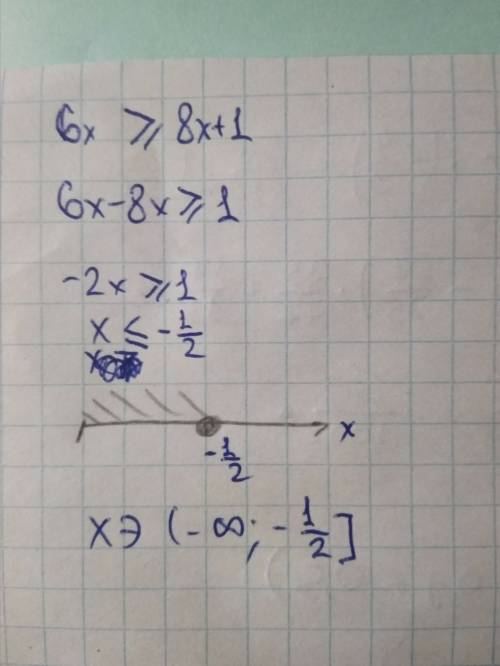 6x ⩾ 8x+1
6x-8x ⩾ 1
-2x ⩾ 1
x ≤ -1/2
x
-1/2
x ∋ (-∞; -1/2]